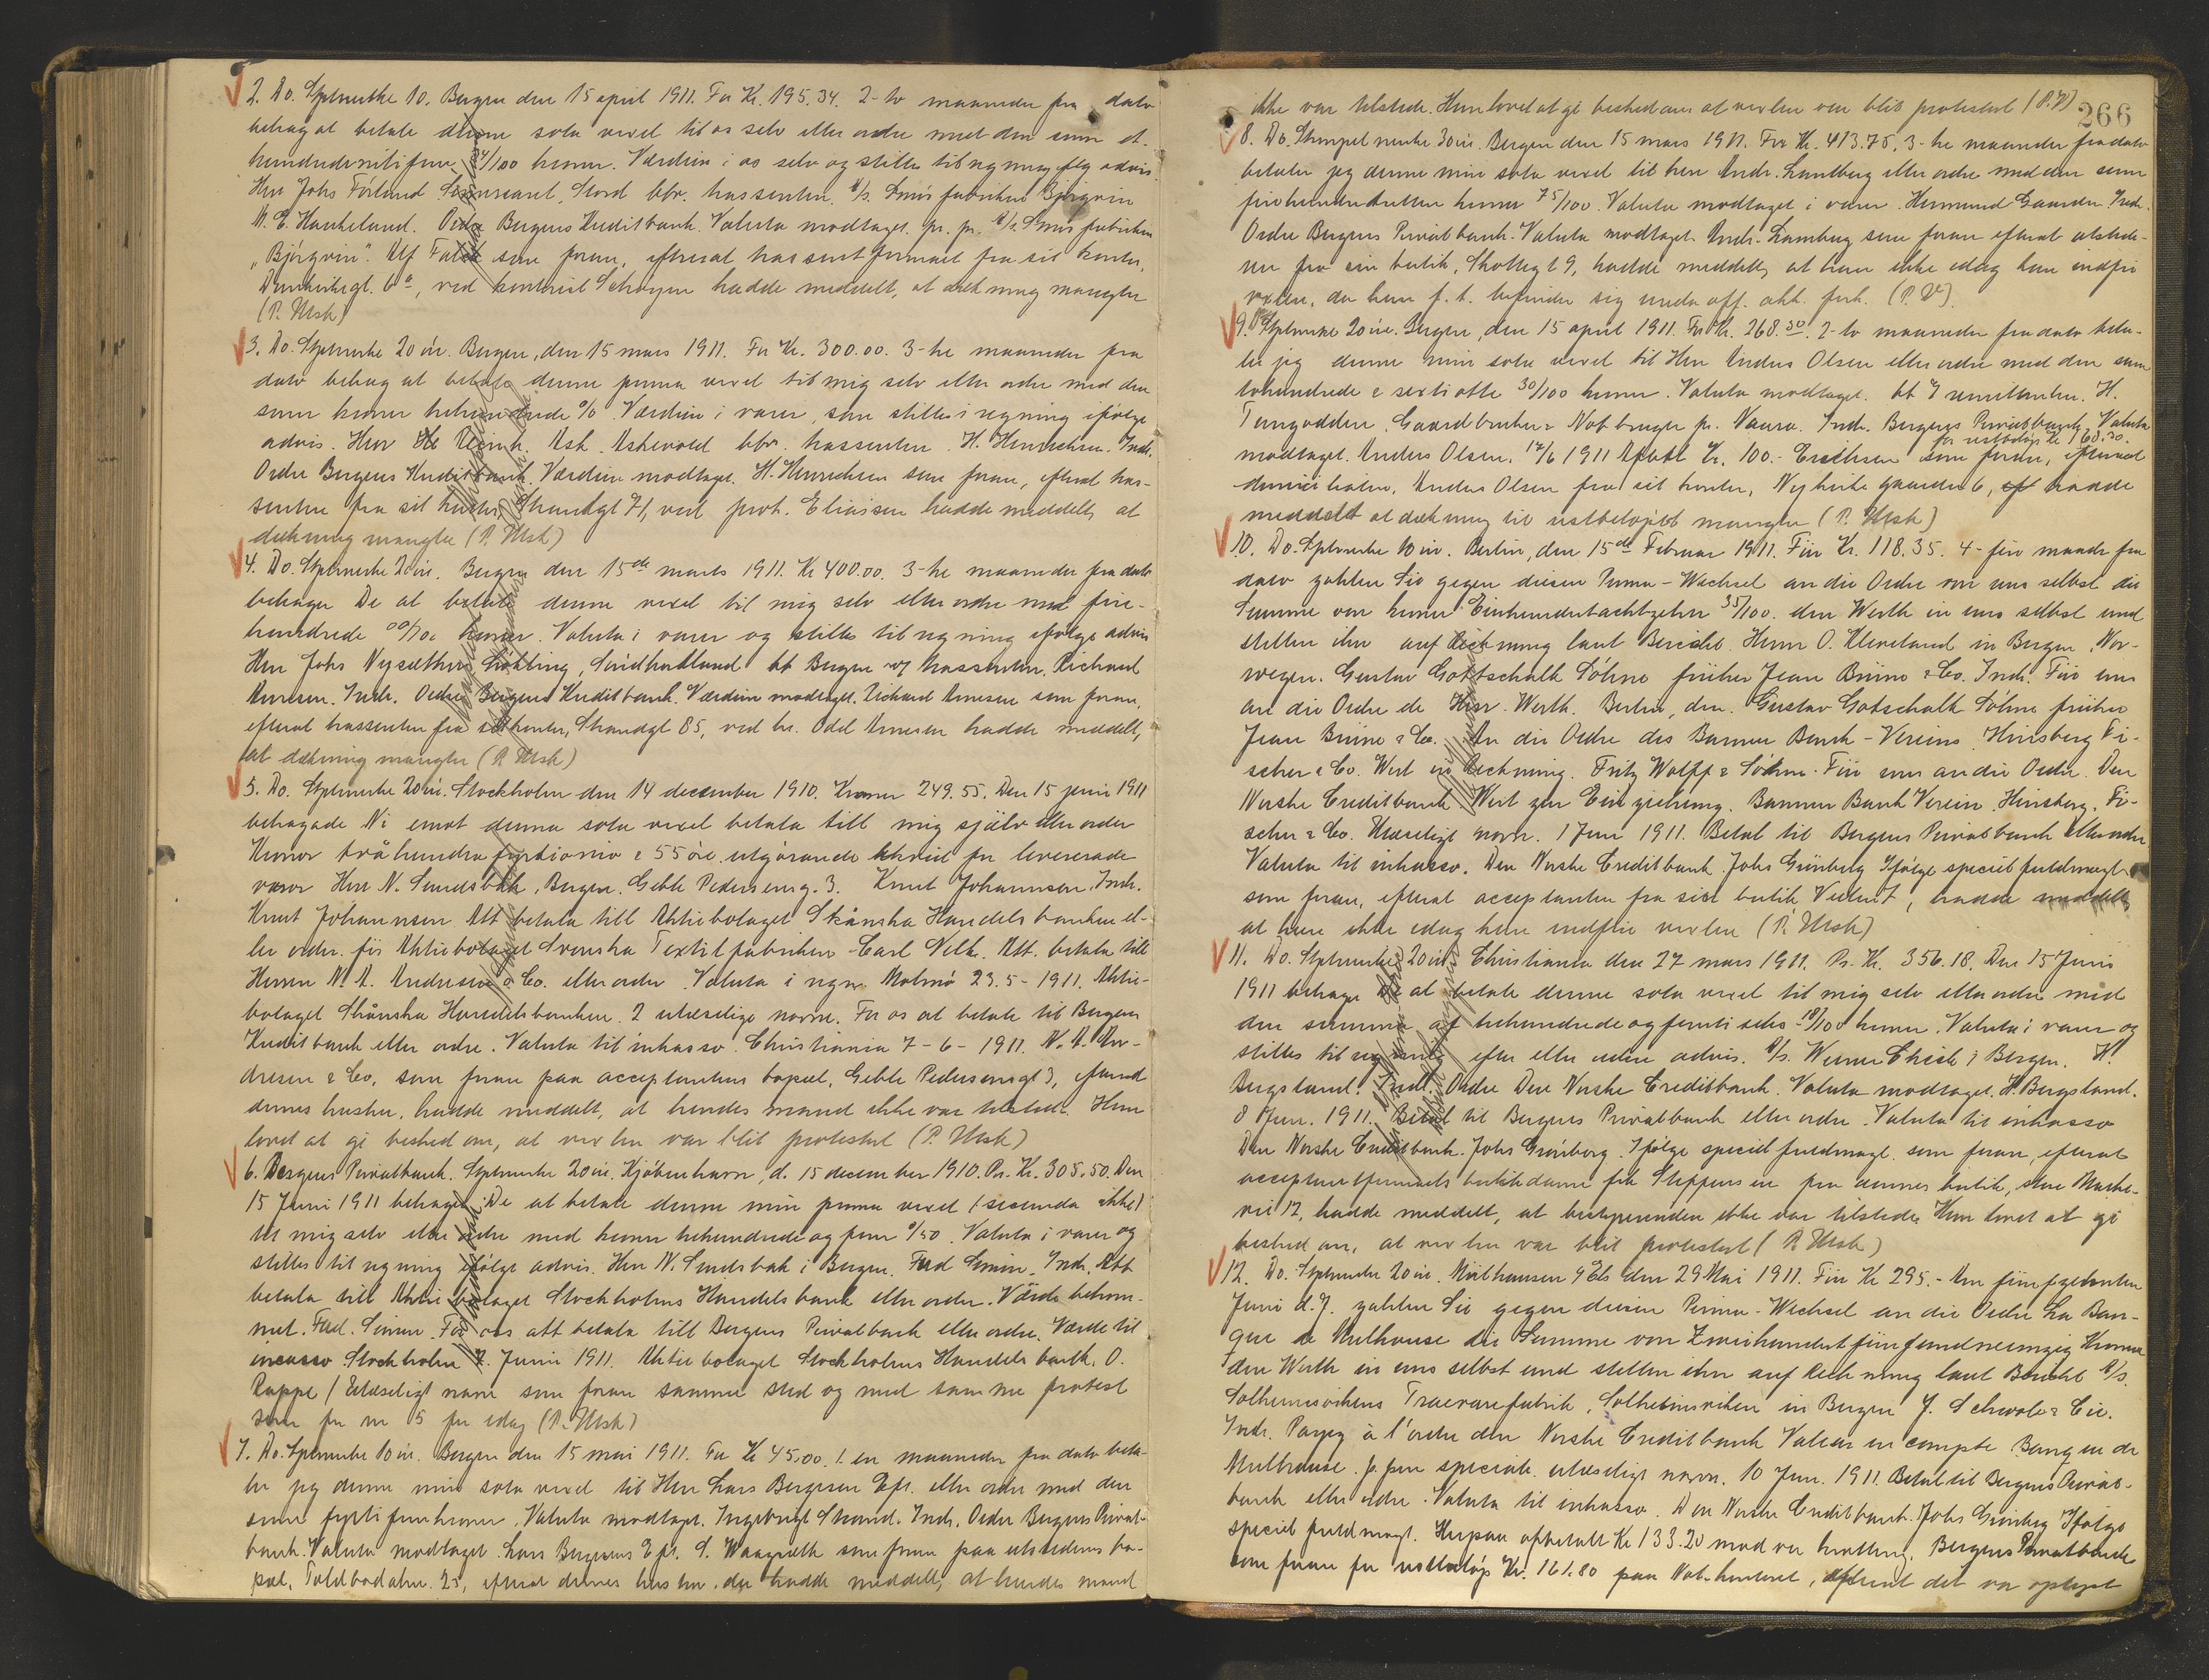 2. Do. Stplmerke 10. Bergen den 15 april 1911. For Kr. 195.34. 2-to maaneder fra dato
behag at betale denne sola vexel til os selv eller ordre med den sum et-
hundredenittifem 34/100 kroner. Værdien i os selv og stilles til regning iflg advis
Herr Johs Førland Stord bbr. trassenten. A/S. Smørfabriken Bjørgvin
M. E. Haukeland. Ordre Bergens Kreditbank. Valuta modtaget. pr. pr. A/S. Smørfabriken
"Bjørgvin". Ulf som foran, efterat trassent firmaet fra sit kontor,
6a, ved kontorist Schrøyen hadde meddelt, at dækning mangler
(P. Utsk)
3. Do. Stplmerke 20 øre. Bergen, den 15 mars 1911. For Kr. 300.00. 3-tre maaneder fra
dato behag at betale denne prima vexel til mig selv eller ordre med den
sum kroner trehundrede 0/0. Værdien i varer, som stilles i regning ifølge
advis. Herr Ask. Askevold bbr. trassenten. H. Henrichsen. Indr.
Ordre Bergens Kreditbank. Værdien modtaget. H. Henrichsen som foran, efterat tras-
senten fra sit kontor, Strandgt 71, ved prok. Eliassen hadde meddelt, at
dækning mangler (P. Utsk)
4. Do. Stplmerke 20 øre. Bergen den 15de marts 1911. Kr 400.00. 3-tre maaneder fra dato
behager De at betale denne vexel til mig selv eller ordre med fire-
hundrede 00/100 kroner. Valuta i varer og stilles til regning ifølge advis
Herr Johs Nysæther Søndhordland bt Bergen og trassenten. Richard
Arnesen. Indr. Ordre Bergens Kreditbank. Værdien modtaget. Richard Arnesen som foran,
efterat trassenten fra sit kontor, Strandgt 85, ved hr. Odd Arnesen hadde meddelt,
at dækning mangler (P. Utsk)
5. Do. Stplmerke 20 øre. Stockholm den 14 december 1910. Kronor 249.55. Den 15 juni 1911
behagade Ni emot denna sola vexel betala till mig själv eller order
Kronor tvåhundrafyrtionio & 55 öre utgörande likvid för levererade
varor Herr N. Sundsbak, Bergen. Geble Pedersensg. 3. Knut Johannsen. Indr.
Knut Johannsen Att betala till Aktiebolaget Skånska Handelsbanken el-
ler order. för Aktiebolaget Svenska Textilfabriken Carl Att. betala till
Herren N. A. Andresen & Co. eller order. Valuta i regn. Malmö 23.5-1911. Aktie-
bolaget Skånska Handelsbanken. 2 ulæselige navne. For os at betale til Bergens
Kreditbank eller ordre. Valuta til inkasso. Christiania 7-6-1911. N. A. An-
dresen & Co, som foran paa acceptantens bopæl, Geble Pedersensgt 3, efterat
dennes hustru, hadde meddelt, at hendes mand ikke var tilstede. Hun
lovet at gi beshed om, at vexlen var blit protestert (P. Utsk)
6. Bergens Privatbank. Stplmerke 20 øre. Kjöbenhavn, d. 15 december 1910. Pr. Kr. 305.50. Den
15 Juni 1911 behager De at betale denne min prima vexel (secunda ikke)
til mig selv eller ordre med kroner trehundrede og fem 0/50. Valuta i varer og
stilles til regning ifølge advis. Herr N. Sundsbak i Bergen. Ferd Simon. Indr. Att
betala till Aktiebolaget Stockholms Handelsbank eller order. Värde bekom-
met. Ferd. Simon. För oss att betala till Bergens Privatbank eller ordre. Værde til
incasso Stockholm 2. Juni 1911. Aktiebolaget Stockholms Handelsbank. O.
Rappe / Ulæseligt navn som foran samme sted og med samme protest
som for nr 5 for idag (P. Utsk)
7. Do. Stplmerke 10 øre. Bergen den 15 mai 1911. For Kr 45.00. 1. en maaneder fra dato beta-
ler jeg denne min sola vexel til Herr Lars Bergesen Eft. eller ordre med den
sum fyrtifem kroner. Valuta modtaget. Ingebrigt Strand. Indr. Ordre Bergens Privat-
bank. Valuta modtaget. Lars Bergesens Eft. S. som foran paa utstederens bo-
pæl, Toldbodalm. 25, efterat dennes hustru. der hadde meddelt, at hendes mand
266
ikke var tilstede. Hun lovet at gi beshed om at vexlen var blit protestert (P.V)
8. Do. Stempelmerke 30 øre. Bergen den 15 mars 1911. For Kr. 413.75. 3-tre maaneder fra dato
betaler jeg denne min sola vexel til herr Andr. Lamberg eller ordre med den sum
firehundredetretten kroner 75/100. Valuta modtaget i varer. Hermund Gaarder. Indr.
Ordre Bergens Privatbank. Valuta modtaget. Andr. Lamberg som foran efterat utstede-
ren fra sin butik, Skottegt 9, hadde meddelt, at han ikke idag kan indfri
vexlen, da han f. t. befinder sig under off. akk. forh. (P. V).
9. Do Stplmerke 20 øre. Bergen, den 15 april 1911. For Kr. 268.30. 2-to maaneder fra dato beta-
ler jeg denne min sola vexel til Herr Anders Olsen eller ordre med den sum
tohundrede & sextiotte 30/100 kroner. Valuta modtaget. bt remittenten. H.
Tungodden. Gaardbruker & Notbruger pr. Naura. Indr. Bergens Privatbank. Valuta
for restbeløp Kr 168.30.
modtaget. Anders Olsen. 17/6 1911 Afbtl Kr. 100.- Erichsen som foran, efterat
domiciliaten, Anders Olsen fra sit kontor, Nykirke gaarden 6, hadde
meddelt at dækning til restbeløpet mangler (P. Utsk)
10. Do. Stplmerke 10 øre. Berlin, den 15de Februar 1911. Für Kr. 118.35. 4-fire maaneder fra
dato zahlen Sie gegen diesen Prima-Wechsel an die Ordre von uns selbst die
Summe von kronen Einhundertachtzehn 35/100. den Werth in uns selbst und
stellen ihn auf Rechnung laut Bericht. Herrn O. Kleveland in Bergen, Nor-
wegen. Gustav Gottschalk Söhne früher Jean Brüno & Co. Indr. Für uns
an die Ordre de Herr. Werth. Berlin, den. Gustav Gotschalk Söhne früher
Jean Brüno & Co. An die Ordre des Barmer Bank-Vereins Hinsberg Fi-
scher & Co. Wert in Rechnung. Fritz Wolff & Söhne. Für uns an die Ordre. Den
Norske Creditbank Wert zur Einziehung. Barmer Bank Verein Hinsberg, Fi-
scher & Co. Ulæseligt navn. 1 Juni 1911. Betal til Bergens Privatbank eller ordre
Valuta til inkasso. Den Norske Creditbank. Johs Grönberg Ifølge speciel fuldmagt
som foran, efterat acceptanten fra sin butik, hadde meddelt
at han ikke idag kan indfri vexlen (P. Utsk)
11. Do. Stplmerke 20 øre. Christiania den 27 mars 1911. Pr. Kr. 356.18. Den 15 Juni
1911 behager De at betale denne sola vexel til mig selv eller ordre med
den summa af trehundrede og femti seks 18/100 kroner. Valuta i varer og
stilles til regning efter eller uden advis. A/S. i Bergen. H.
Bergsland. Indr. Ordre Den Norske Creditbank. Valuta modtaget. H. Bergsland.
8 Jun. 1911. Betal til Bergens Privatbank eller ordre. Valuta til inkasso
Den Norske Creditbank. Johs Grönberg. Ifølge speciel fuldmagt. som foran, efterat
acceptantfirmaets butikdame frk Steffensen fra dennes butik, store Marke-
vei 12, hadde meddelt, at bestyrerinden ikke var tilstede. Hun lovet at gi
beshed om, at vexlen var blit protestert (P. Utsk)
12. Do. Stplmerke 20 øre. Mülhausen i/Els den 29 Mai 1911. Für Kr 295.- Am fünfzehnten
Juni d.J. zahlen Sie gegen diesen Prima-Wechsel an die Ordre La Ban-
que de Mulhouse die Summe von Zweihundertfünfundneunzig Kronen
den Werth in uns selbst und stellen ihn auf Rechnung laut Bericht A/S.
Solheimsvikens Traevarefabrik, Solheimsviken in Bergen J. Schwob & Cie.
Indr. Payez à l'ordre den Norske Creditbank Valeur en compte Banque de
Mulhouse. p. pon speciale ulæseligt navn. 10 Jun. 1911. Betal til Bergens Privat-
bank eller ordre. Valuta til inkasso. Den Norske Creditbank. Johs Grönberg Ifølge
speciel fuldmagt. Herpaa afbetalt Kr 133.20 mod kvittering. Bergens Privatbank
som foran for restbeløp Kr. 161.80 paa Not. kontoret, efterat det var oplyst